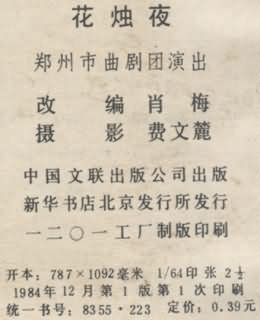 花烛夜
郑州市曲剧团演出
改 编 肖 梅
摄 影 费文麓
中国文联出版公司出版
新华书店北京发行所发行
一二〇一工厂制版印刷
开本：787×1092毫米 1/64印张 2½
1984年12月第1版第1次印刷
统一书号：8355·223 定价：0.39元